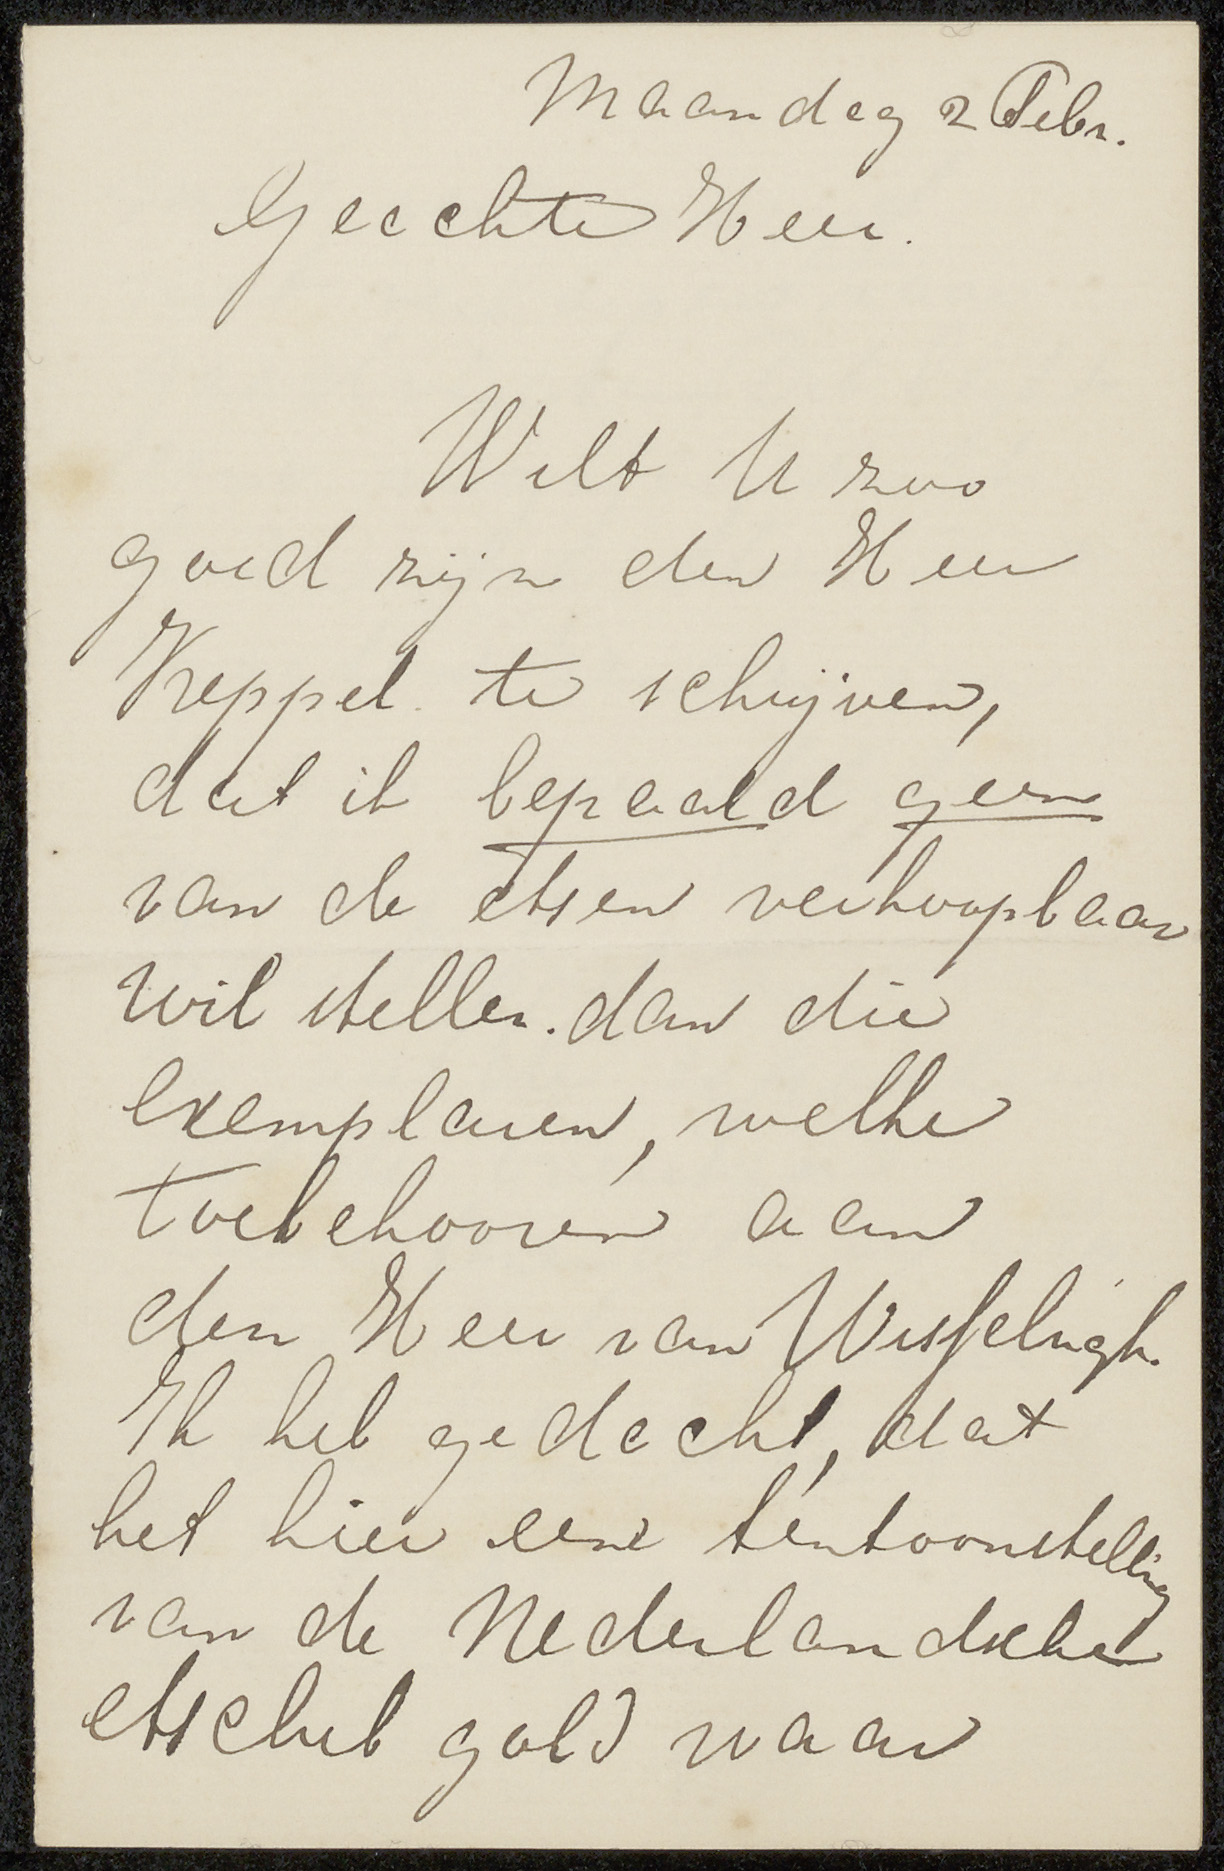 Maandag 2 Febr.
Geachte Heer.
Wilt U zoo
goed zijn den Heer
Keppel te schrijven,
dat ik bepaald geen
van de etsen verkoopbaar
wil stellen. dan die
exemplaren, welke
toebehooren aan
den Heer van Wisselingh.
Ik heb gedacht, dat
het hier eene tentoonstelling
van de Nederlandsche
etsclub gold waar